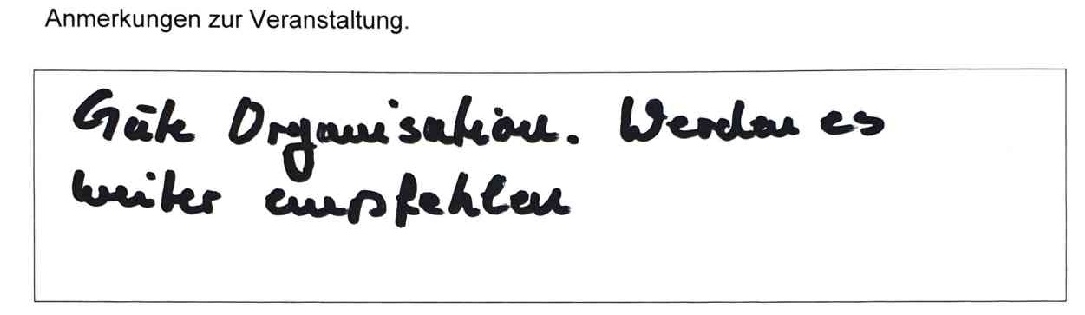 Anmerkungen zur Veranstaltung.
Gute Organisation. Werden es
weiter empfehlen